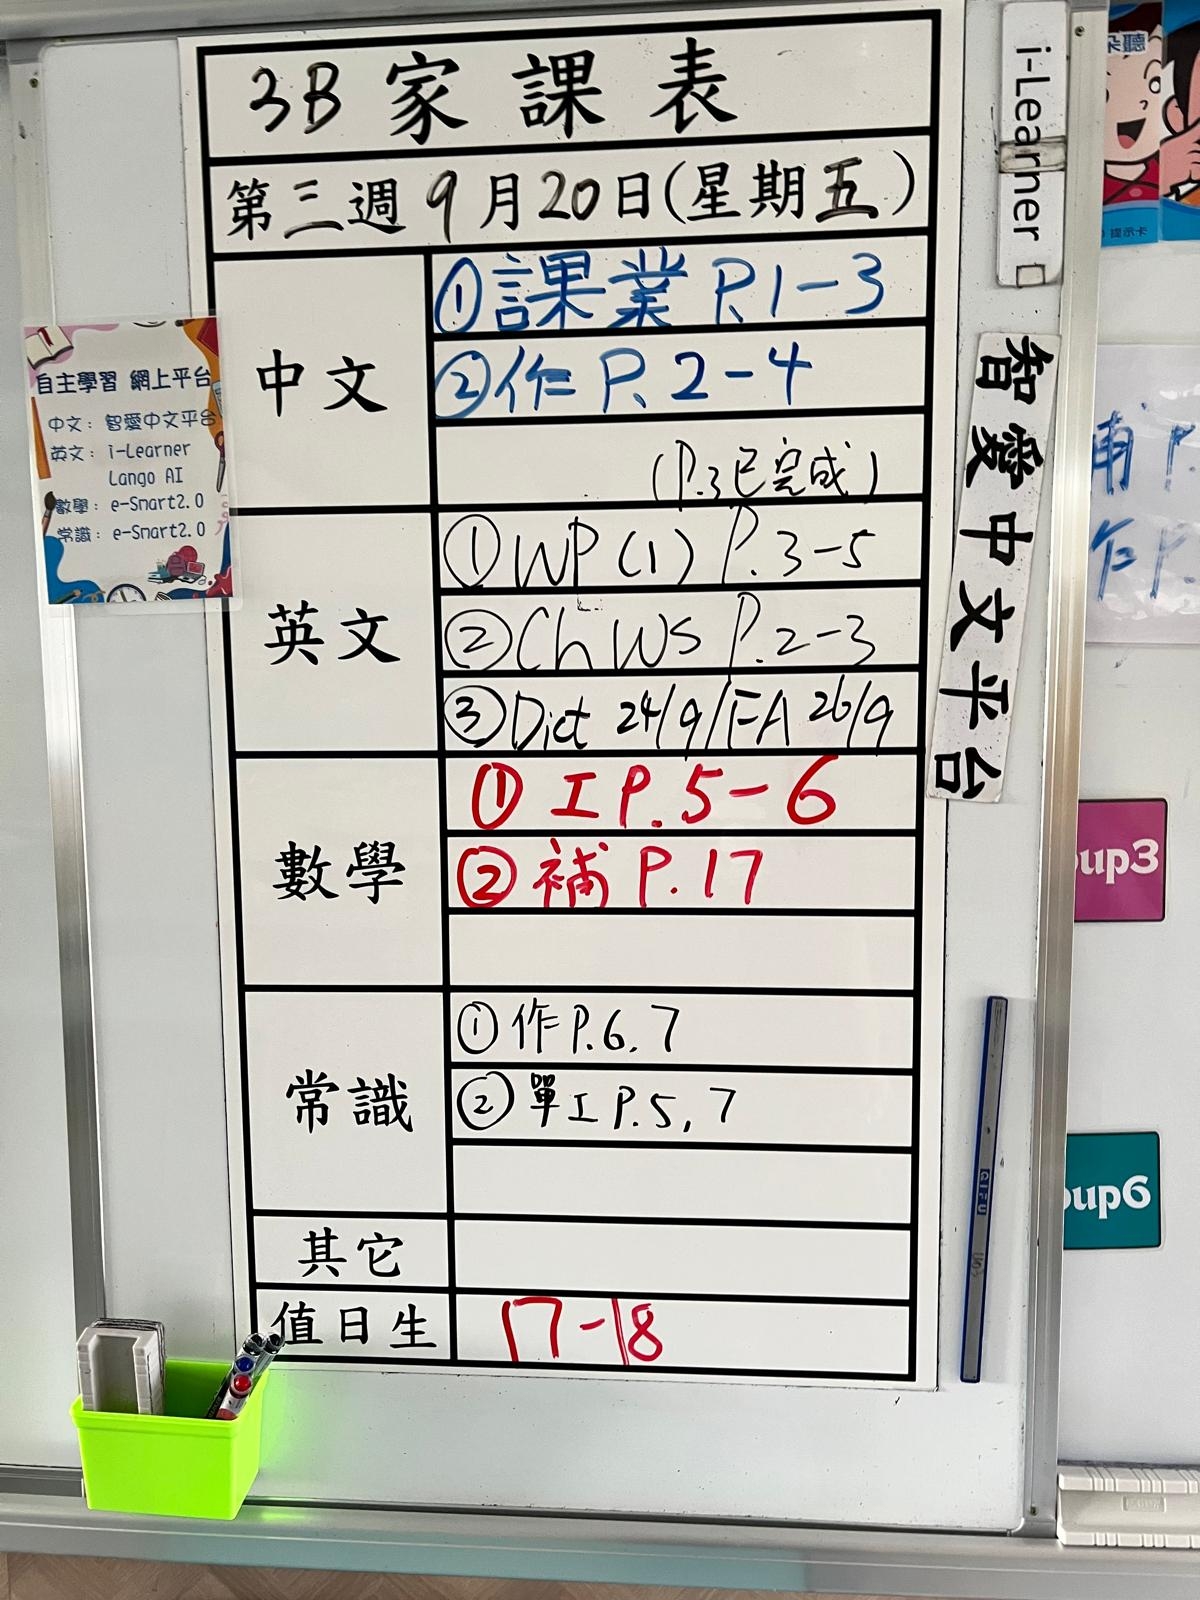 3B 家課表
第三週 9月20日(星期五)
中文
①課業 P.1-3
②作 P. 2-4
(P.3已完成)
英文
①WP (1) P.3-5
②Ch WS P.2-3
③Dict 24/9/EA 26/9
數學
① 工 P.5-6
② 補 P.17
常識
① 作 P.6, 7
② 單工 P.5, 7
其它
值日生
17-18
自主學習 網上平台
中文: 智愛中文平台
英文: i-Learner
Lango AI
數學: e-Smart2.0
常識: e-Smart2.0
i-Learner
智愛中文平台
提示卡
oup3
oup6